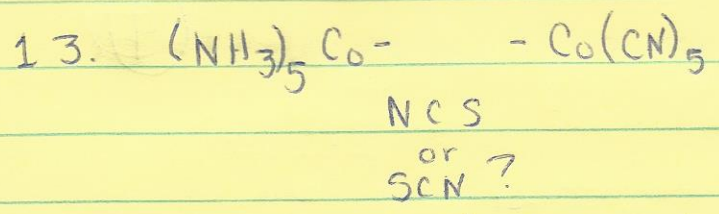 13. (NH3)5 Co- - Co(CN)5
NCS
or
SCN ?